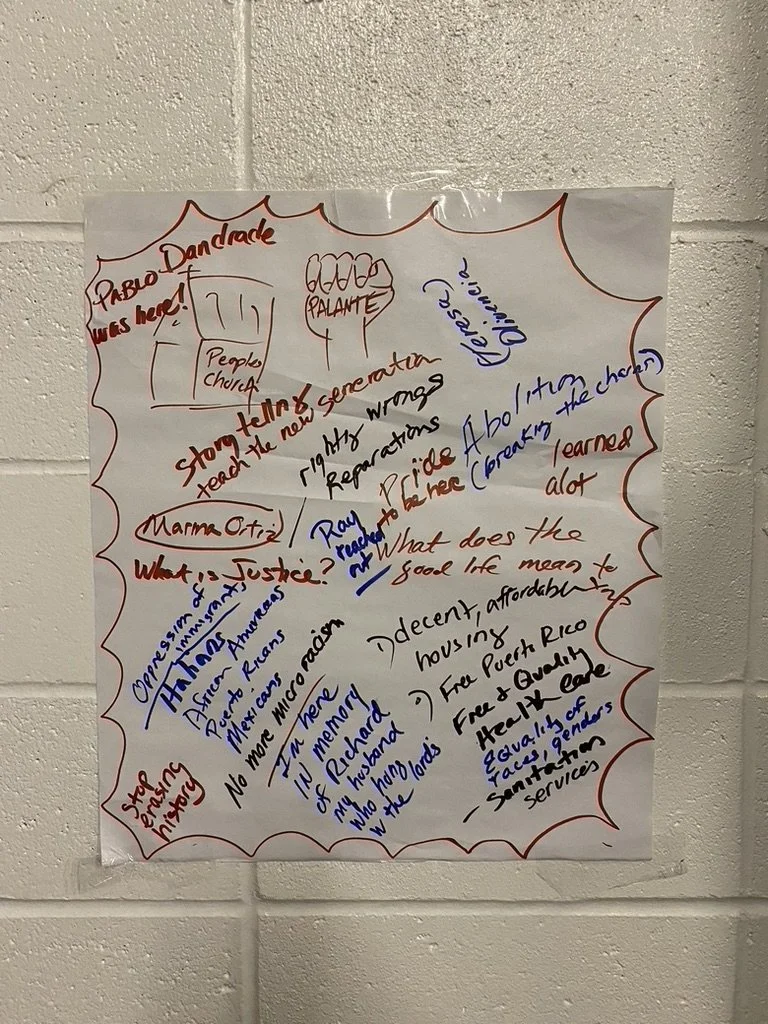 PABLO Dandrade
was here!
Peoples
Church
PALANTE
(Teresa)
Story telling
teach the new generation
righty wrongs
Reparations
Pride
to be here
Abolition
(breaking the chains)
learned
alot
Marina Ortiz
Ray
reached
out
What is Justice?
What does the
good life mean to
Oppression of
immigrants,
Italians
African Americans
Puerto Ricans
Mexicans
No more microracism
I'm here
IN memory
of Richard
my husband
who hung
w the lords
1) decent, affordable
housing
2) Free Puerto Rico
Free & Quality
Health Care
Equality of
races, genders
- Sanitation
services
Stop
erasing
history